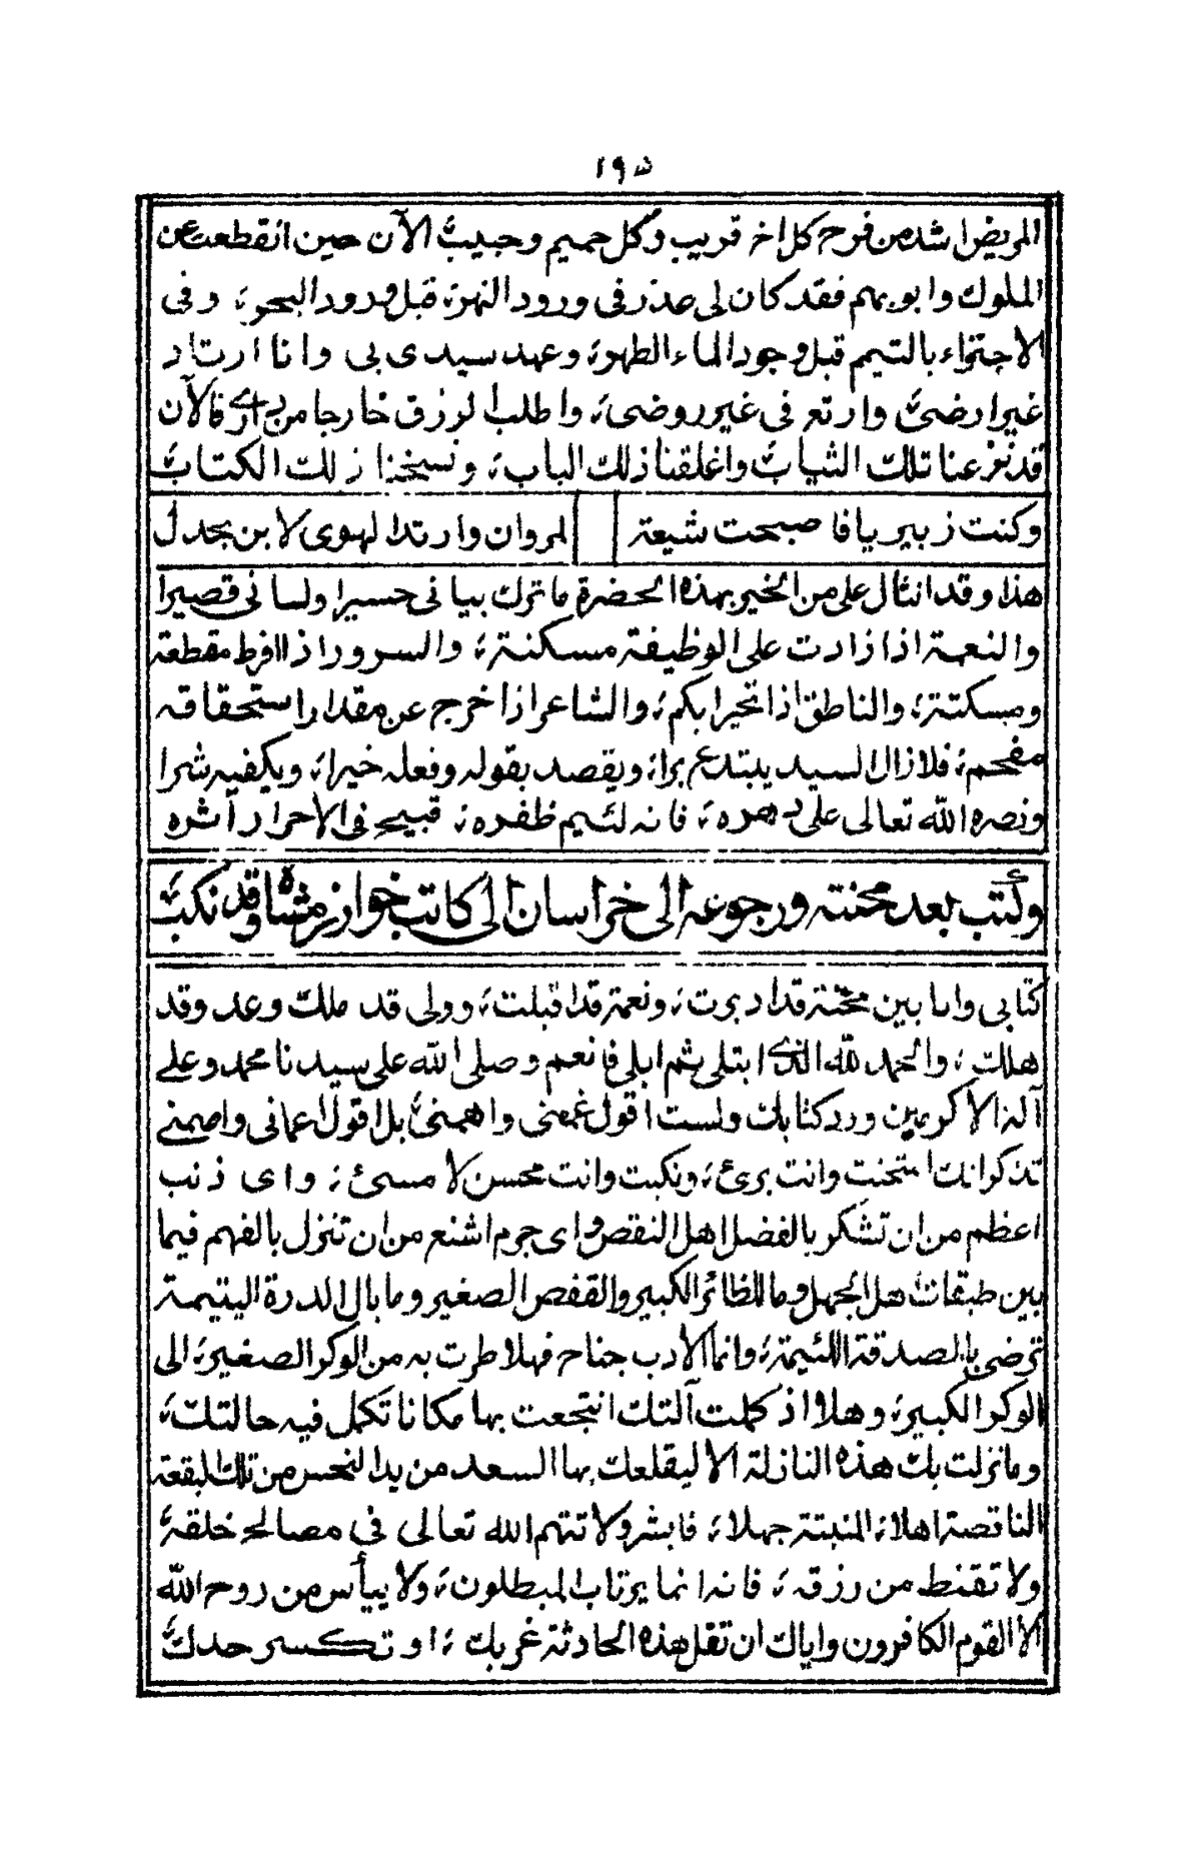 ١٩٥
المريض اشد من فرح كل اخ قريب وكل حميم وحبيب الآن حين انقطعت عن
الملوك وابوبهم فقد كان لى عذر فى ورود النهر، قبل ورود البحر، وفى
الاجتزاء بالتيمم قبل وجود الماء الطهور، وعهد سيدى بى وانا ارتاد
غير ارضى، وارتع فى غير روضى، واطلب الرزق خارجا من دارى فالآن
قد نزعنا تلك الثياب، واغلقنا ذلك الباب، ونسخنا ذلك الكتاب،
وكنت زبيريا فاصبحت شيعة لمروان وارتد الهوى لابن بجدل
هذا وقد انثال على من الخير بهذه الحضرة ما ترك بيانى حسيرا ولسانى قصيرا
والنعمة اذا زادت على الوظيفة مسكنة، والسرور اذا افرط مقطعة
ومسكتة، والناطق اذا تحير ابكم، والشاعر اذا خرج عن مقدار استحقاقه
مفحم، فلا زال السيد يبتدع برا، ويقصد بقوله وفعله خيرا، ويكفيه شرا
ونصره الله تعالى على دهره، فانه لئيم ظفره، قبيح فى الاحرار أثره
وكتب بعد محنته ورجوعه الى خراسان الى كاتب خوارزمشاه وقد نكب
كتابى وانا بين محنة قد ادبرت، ونعمة قد اقبلت، وولى قد ملك وعدو قد
هلك، والحمد لله الذى ابتلى ثم ابلى فانعم وصلى الله على سيدنا محمد وعلى
آله الاكرمين ورد كتابك ولست اقول غمنى واهمنى، بل اقول اعمانى واصمنى
تذكر انك امتحنت وانت برئ، ونكبت وانت محسن لا مسئ، واى ذنب
اعظم من ان تشكر بالفضل اهل النقص واى جرم اشنع من ان تنزل بالفهم فيما
بين طبقات اهل الجهل وما للطائر الكبير والقفص الصغير وما بال الدرة اليتيمة
ترضى بالصدقة اللئيمة، وانما الادب جناح فهلا طرت به من الوكر الصغير، الى
الوكر الكبير، وهلا اذ كملت آلتك انتجعت بها مكانا تكمل فيه حالتك،
وما نزلت بك هذه النازلة الا ليقلعك بها السعد من يد النحس من تلك البقعة
الناقصة اهلا، المنبتة جهلا، فابشر ولا تتهم الله تعالى فى مصالح خلقه،
ولا تقنط من رزقه، فانه انما يرتاب المبطلون، ولا ييأس من روح الله
الا القوم الكافرون واياك ان تفل هذه الحادثة غربك، او تكسر حدك،